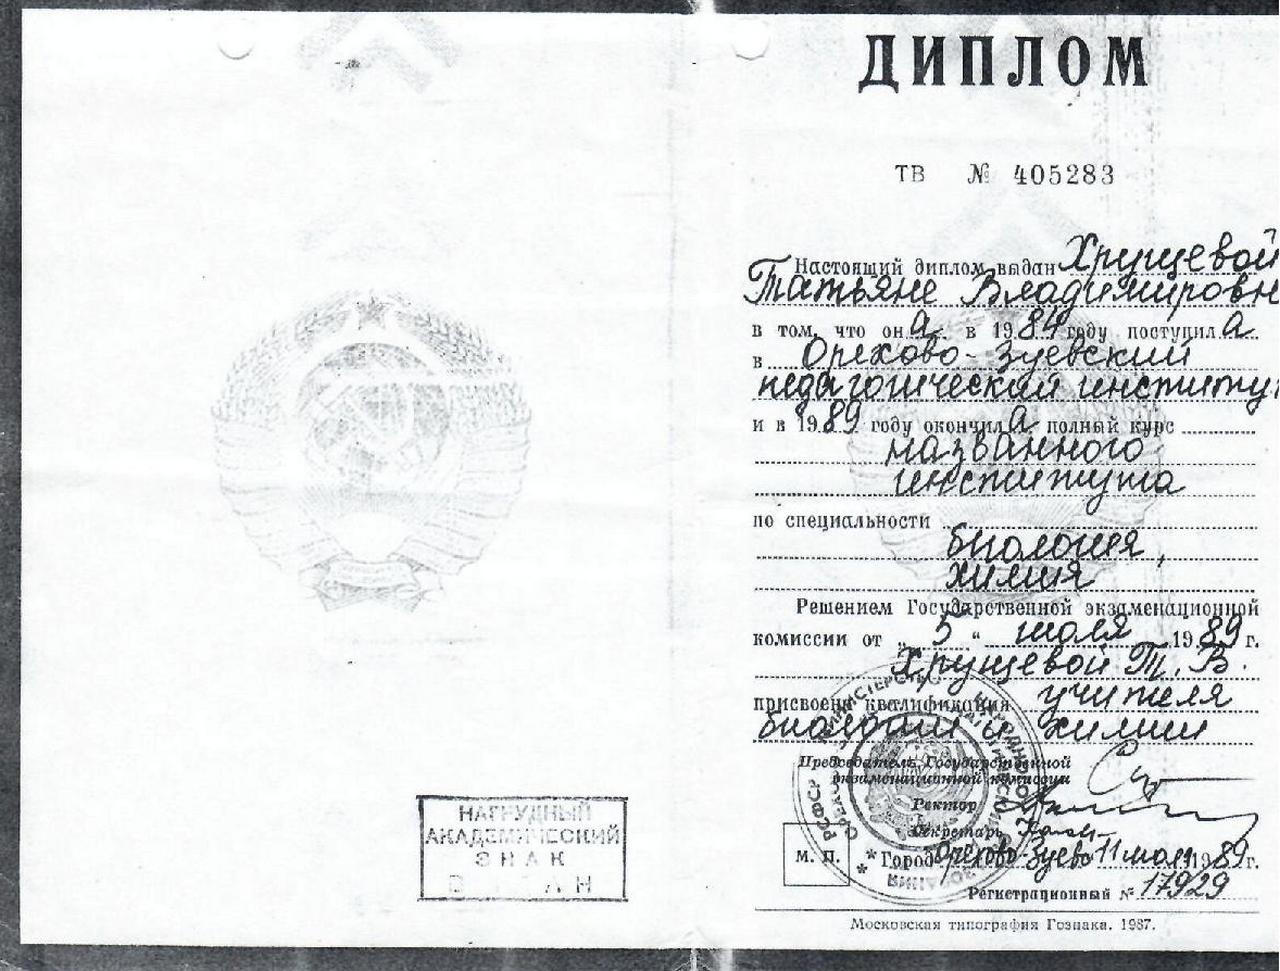 ДИПЛОМ
ТВ № 405283
Настоящий диплом выдан Хрущевой
Татьяне Владимировн
в том, что он а в 1984 году поступил а
в Орехово-Зуевский
педагогический институт
и в 1989 году окончил а полный курс
названного
института
по специальности
биология,
химия
Решением Государственной экзаменационной
комиссии от „5“ июля 1989 г.
Хрущевой Т. В.
присвоена квалификация учителя
биологии и химии
Председатель Государственной
экзаменационной комиссии
Ректор
Секретарь
М. П.
Город Орехово-Зуево 11 июля 1989 г.
Регистрационный № 17929
Московская типография Гознака. 1987.
НАГРУДНЫЙ
АКАДЕМИЧЕСКИЙ
ЗНАК